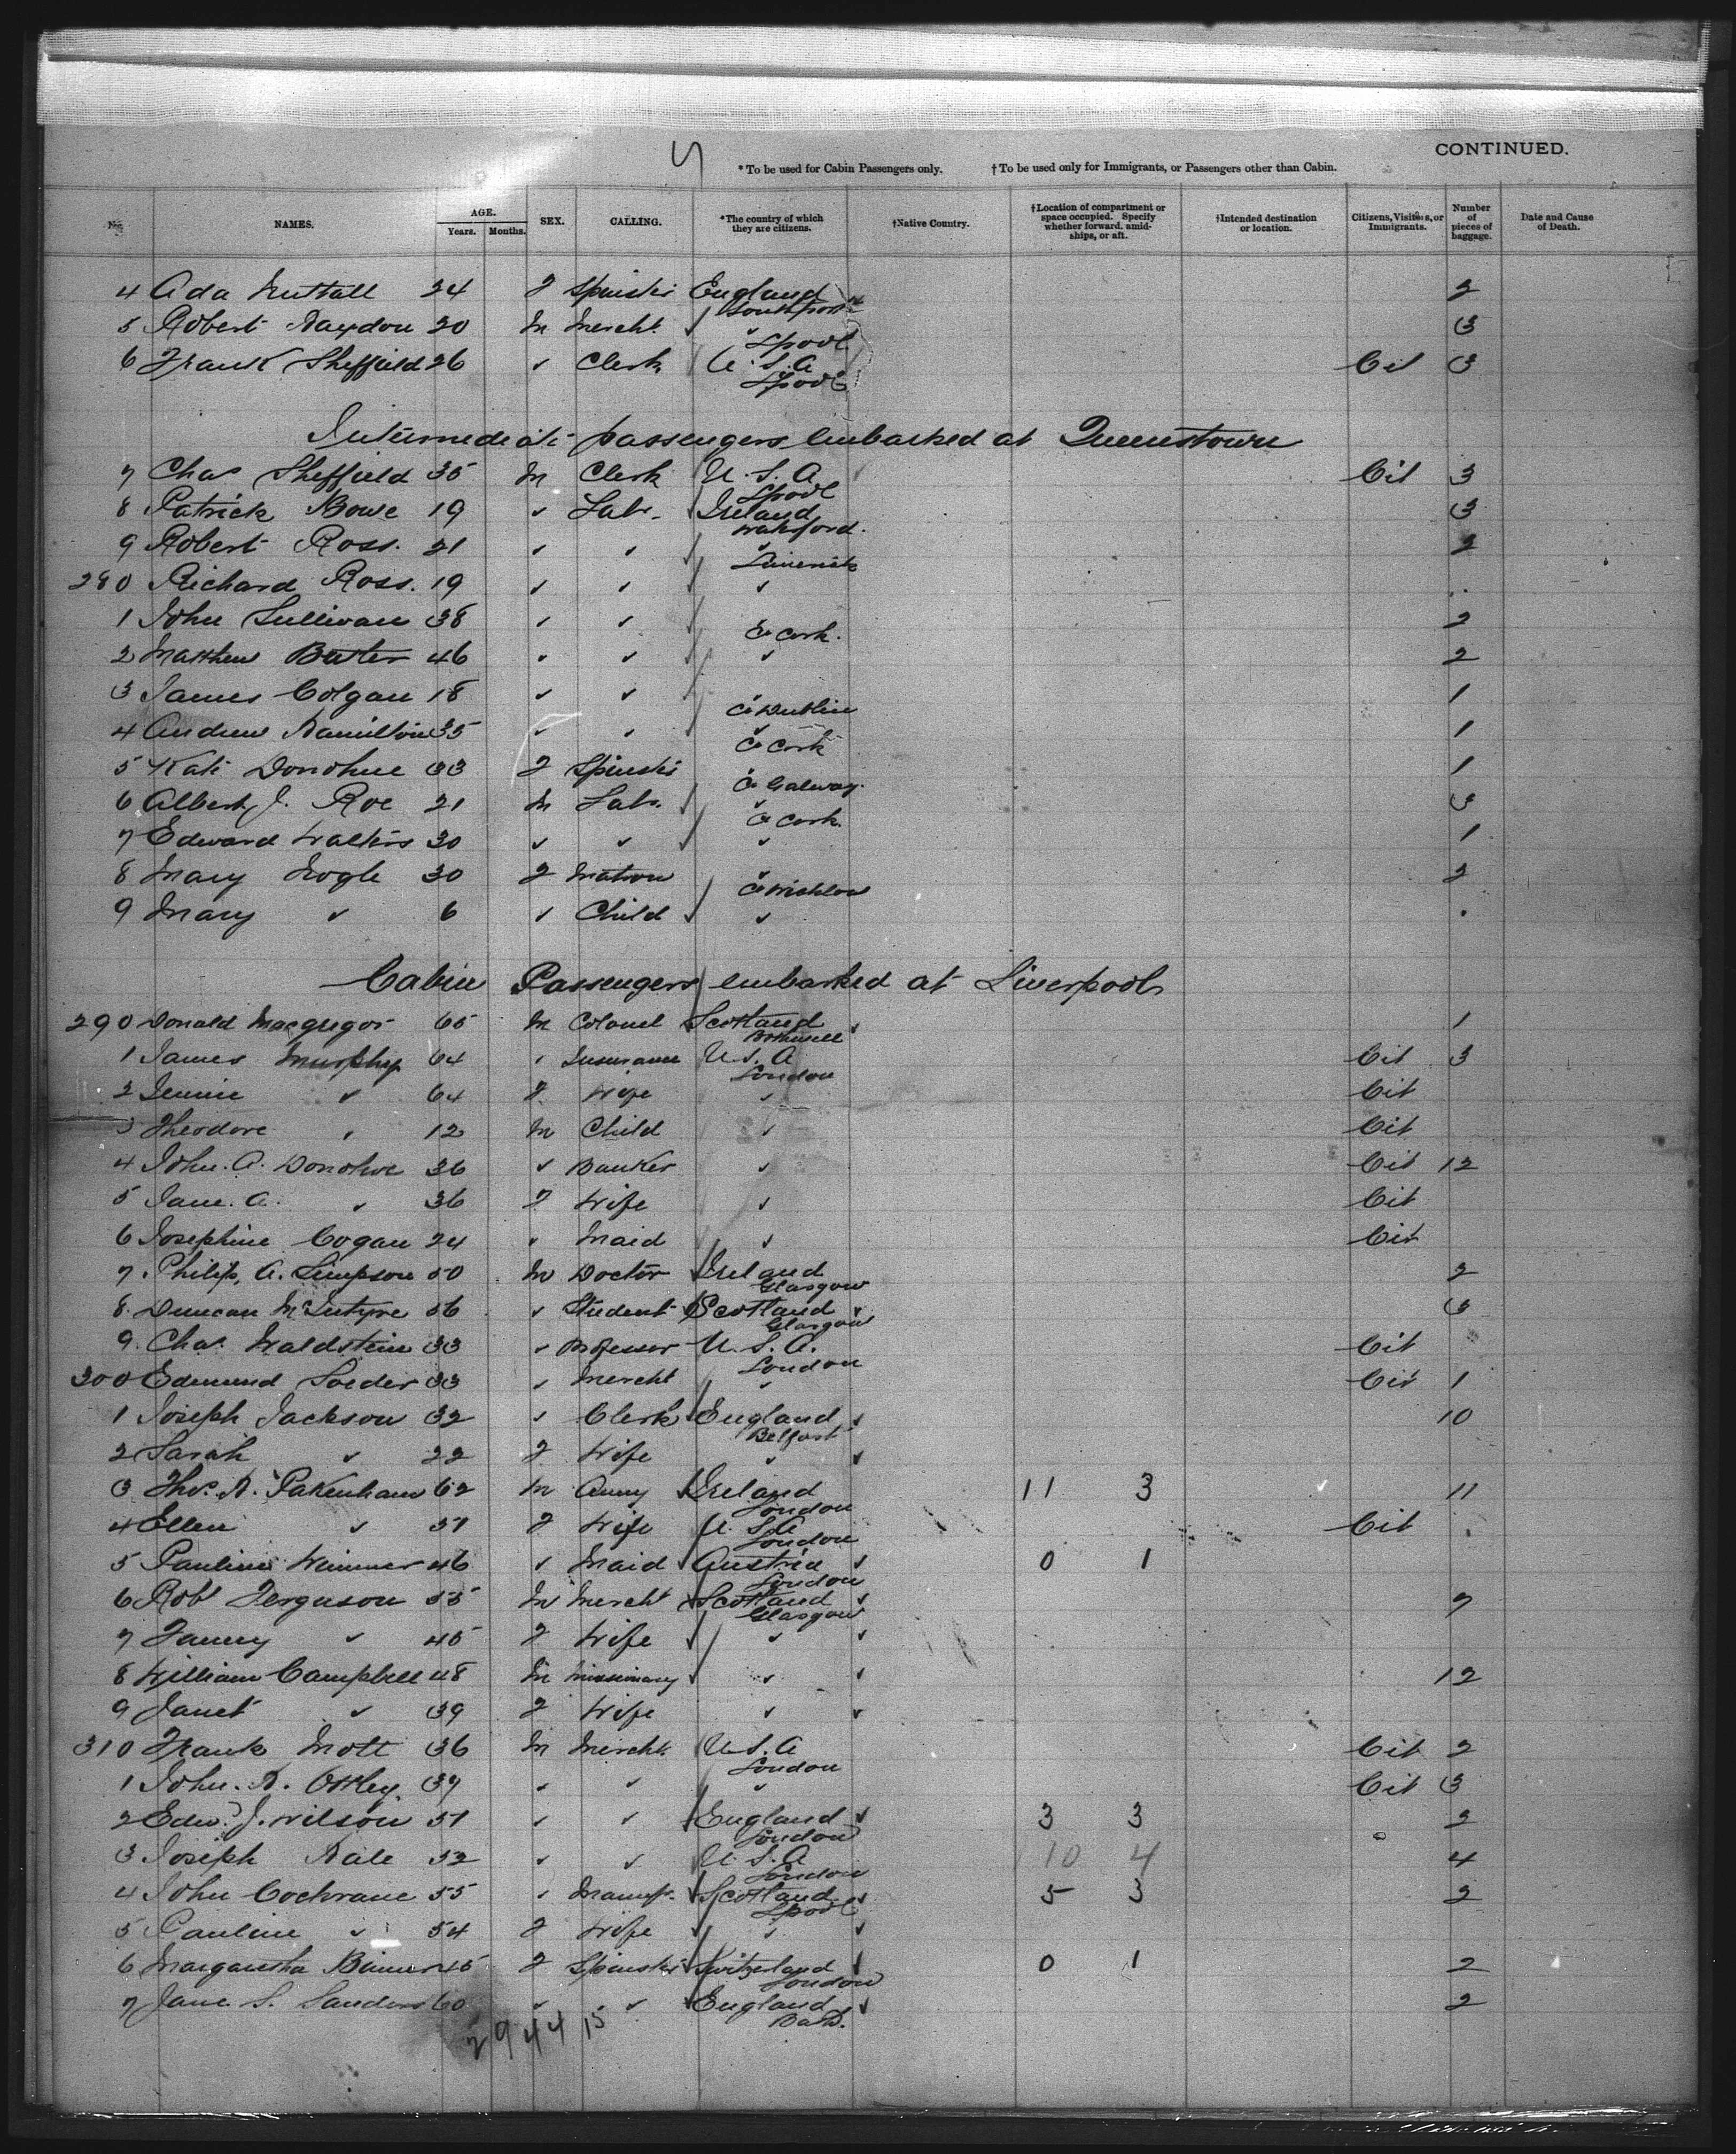 CONTINUED.
4
*To be used for Cabin Passengers only. †To be used only for Immigrants, or Passengers other than Cabin.
No. NAMES. AGE. Years. Months. SEX. CALLING. *The country of which they are citizens. †Native Country. †Location of compartment or space occupied. Specify whether forward, amidships, or aft. †Intended destination or location. Citizens, Visitors, or Immigrants. Number of pieces of baggage. Date and Cause of Death.
4 Ada Nuttall 24 F Spinster England Southport 2
5 Robert Haydon 20 M Mercht ✓ Lpool 3
6 Frank Sheffield 26 ✓ Clerk U.S.A Lpool Cit 3
Intermediate passengers embarked at Queenstown
7 Chas Sheffield 35 M Clerk U.S.A Lpool Cit 3
8 Patrick Bowe 19 ✓ Labr. Ireland Waterford. 3
9 Robert Ross. 21 ✓ ✓ ✓ Limerick 2
280 Richard Ross. 19 ✓ ✓ ✓ ..
1 John Sullivan 38 ✓ ✓ Co Cork. 2
2 Matthew 46 ✓ ✓ ✓ 2
3 James Colgan 18 ✓ ✓ Co Dublin 1
4 Andrew Hamilton 35 ✓ ✓ ✓ Co Cork 1
5 Kate Donohue 33 F Spinster ✓ Co Galway. 1
6 Albert J. Roe 21 M Labr. ✓ Co Cork. 3
7 Edward Walters 30 ✓ ✓ ✓ 1
8 Mary 30 F Matron ✓ Co Wicklow 2
9 Mary ✓ 6 ✓ Child ✓ .
Cabin Passengers embarked at Liverpool
290 Donald Macgregor 65 M Colonel Scotland ✓ 1
1 James Murphy 64 ✓ Insurance U.S.A London Cit 3
2 Jennie ✓ 64 F Wife ✓ Cit
3 Theodore ✓ 12 M Child ✓ Cit
4 John. A. Donohoe 36 ✓ Banker ✓ Cit 12
5 Jane. A. ✓ 36 F Wife ✓ Cit
6 Josephine Cogan 24 ✓ Maid ✓ Cit
7. Philip. A. Simpson 50 M Doctor Ireland Glasgow 2
8. Duncan McIntyre 56 ✓ Student Scotland ✓ Glasgow 3
9. Chas. Waldstein 33 ✓ Professor U.S.A. London Cit
300 Edmund 33 ✓ Mercht ✓ Cit 1
1 Joseph Jackson 32 ✓ Clerk England ✓ Belfast 10
2 Sarah ✓ 22 F Wife ✓ ✓
3 Thos. A. Pakenham 62 M Army Ireland London 11 3 11
4 Ellen ✓ 51 F Wife U.S.A London Cit .
5 Pauline Wimmer 46 ✓ Maid Austria ✓ London 0 1
6 Robt Ferguson 55 M Mercht Scotland ✓ Glasgow 7
7 Fanny ✓ 45 F Wife ✓ ✓
8 William Campbell 48 M Missionary ✓ ✓ 12
9 Janet ✓ 39 F Wife ✓ ✓
310 Frank Mott 36 M Mercht. U.S.A London Cit 2
1 John. A. Ottley. 39 ✓ ✓ ✓ Cit 3
2 Edw. J. Wilson 51 ✓ ✓ England ✓ London 3 3 2
3 Joseph Hale 52 ✓ ✓ U.S.A London 10 4 4
4 John Cochrane 55 ✓ Manuf. Scotland ✓ Lpool 5 3 2
5 Pauline ✓ 54 F Wife ✓ ✓
6 Margaretha 45 F Spinster Switzerland ✓ London 0 1 2
7 Jane S. Sanders 60 ✓ ✓ England ✓ Bath. 2
29 44 15